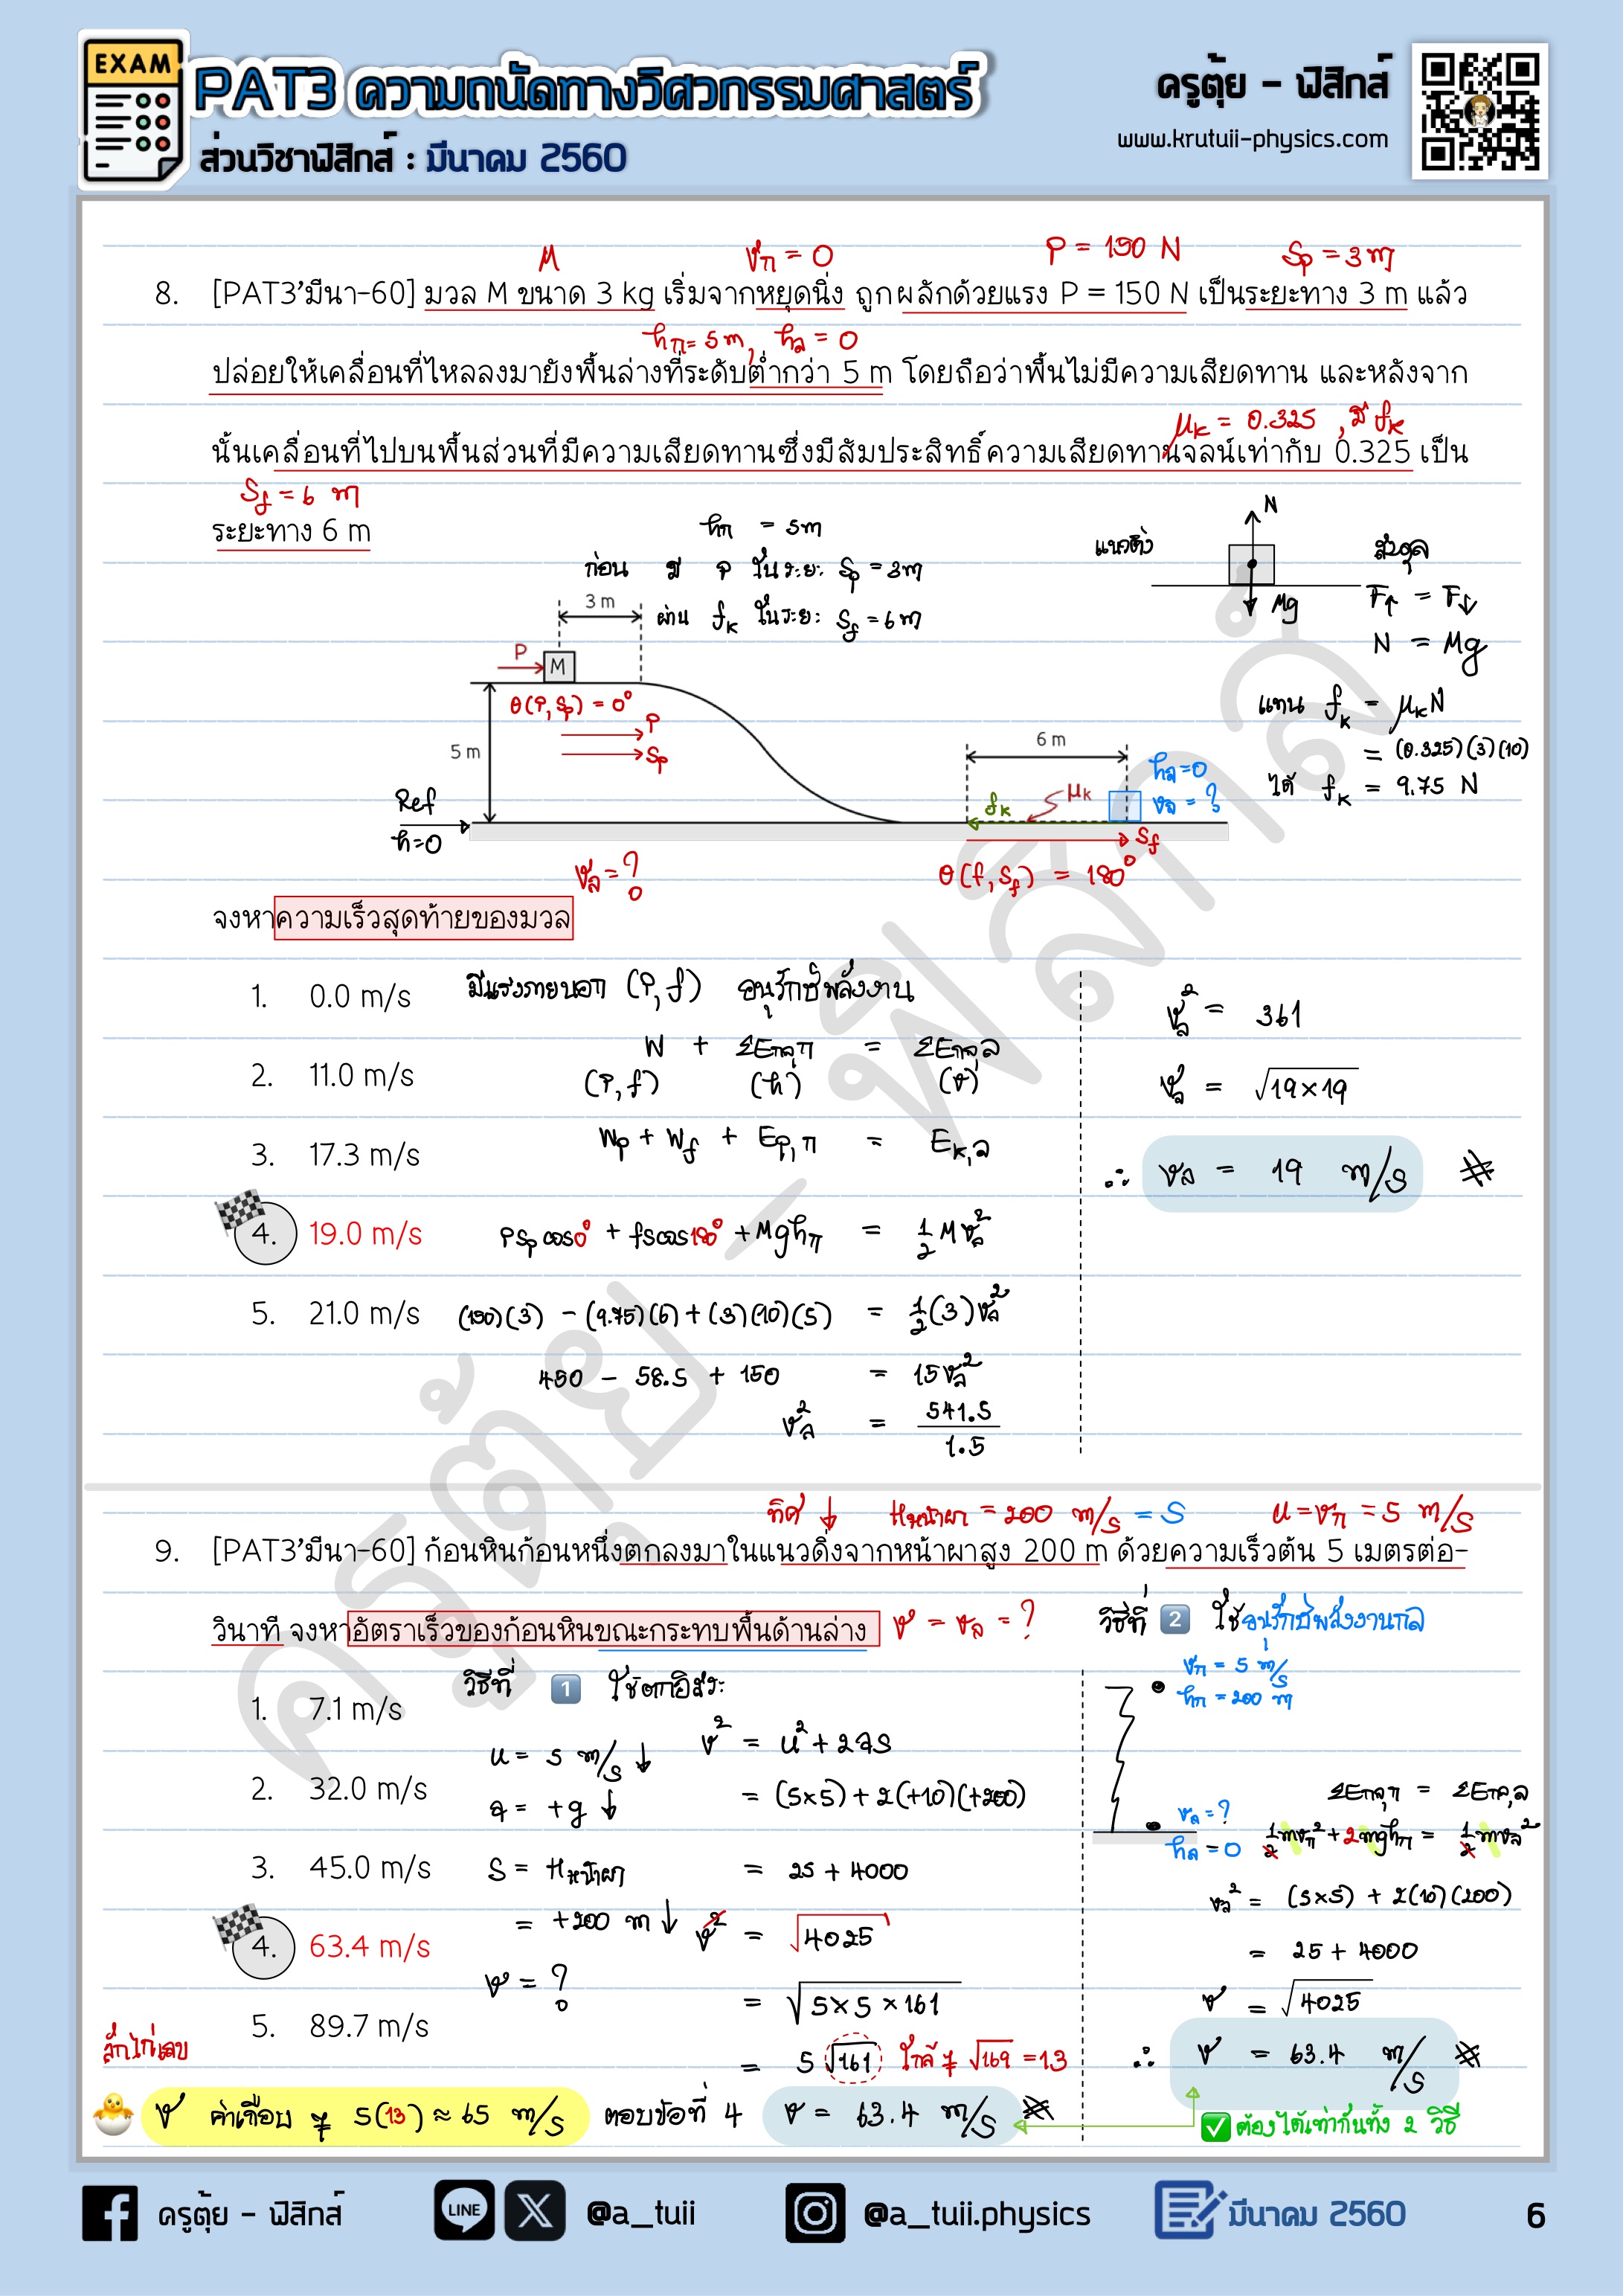 EXAM
PAT3 ความถนัดทางวิศวกรรมศาสตร์
ส่วนวิชาฟิสิกส์ : มีนาคม 2560
ครูตุ้ย - ฟิสิกส์
www.krutuii-physics.com
M
vก = 0
P = 150 N
Sp = 3 m
8. [PAT3'มีนา-60] มวล M ขนาด 3 kg เริ่มจากหยุดนิ่ง ถูกผลักด้วยแรง P = 150 N เป็นระยะทาง 3 m แล้ว
hก = 5 m, hล = 0
ปล่อยให้เคลื่อนที่ไหลลงมายังพื้นล่างที่ระดับต่ำกว่า 5 m โดยถือว่าพื้นไม่มีความเสียดทาน และหลังจาก
μk = 0.325 , มี fk
นั้นเคลื่อนที่ไปบนพื้นส่วนที่มีความเสียดทานซึ่งมีสัมประสิทธิ์ความเสียดทานจลน์เท่ากับ 0.325 เป็น
Sf = 6 m
ระยะทาง 6 m
hก = 5m
ก่อน มี P ในระยะ Sp = 3m
ผ่าน fk ในระยะ Sf = 6m
3 m
P
M
θ(P, Sp) = 0°
P
Sp
5 m
Ref
h=0
6 m
fk
μk
hล=0
vล = ?
Sf
θ(f, Sf) = 180°
vล = ?
แนวดิ่ง
N
Mg
สมดุล
F↑ = F↓
N = Mg
แทน fk = μkN
= (0.325)(3)(10)
ได้ fk = 9.75 N
จงหาความเร็วสุดท้ายของมวล
1. 0.0 m/s
2. 11.0 m/s
3. 17.3 m/s
4. 19.0 m/s
5. 21.0 m/s
มีแรงภายนอก (P, f) อนุรักษ์พลังงาน
W + ΣEกล,ก = ΣEกล,ล
(P, f) (h) (v)
Wp + Wf + Ep,ก = Ek,ล
PSp cos0° + fscos180° + Mghก = 1/2 Mvล²
(150)(3) - (9.75)(6) + (3)(10)(5) = 1/2 (3)vล²
450 - 58.5 + 150 = 15vล²
vล² = 541.5/1.5
vล² = 361
vล = √19×19
∴ vล = 19 m/s #
ทิศ ↓ Hหน้าผา = 200 m/s = S u=vก = 5 m/s
9. [PAT3'มีนา-60] ก้อนหินก้อนหนึ่งตกลงมาในแนวดิ่งจากหน้าผาสูง 200 m ด้วยความเร็วต้น 5 เมตรต่อ-
วินาที จงหาอัตราเร็วของก้อนหินขณะกระทบพื้นด้านล่าง v = vล = ?
1. 7.1 m/s
2. 32.0 m/s
3. 45.0 m/s
4. 63.4 m/s
5. 89.7 m/s
วิธีที่ 1 ใช้ตกอิสระ
u = 5 m/s ↓
a = +g ↓
S = Hหน้าผา
= +200 m ↓
v = ?
v² = u² + 2as
= (5×5) + 2(+10)(+200)
= 25 + 4000
v² = √4025
= √5×5×161
= 5√161 ใกล้ๆ √169 = 13
ลักไก่เลข
v ค่าเกือบๆ 5(13) ≈ 65 m/s ตอบข้อที่ 4 v = 63.4 m/s #
วิธีที่ 2 ใช้อนุรักษ์พลังงานกล
vก = 5 m/s
hก = 200 m
vล = ?
hล = 0
ΣEกล,ก = ΣEกล,ล
1/2 mvก² + 2mghก = 1/2 mvล²
vล² = (5×5) + 2(10)(200)
= 25 + 4000
v = √4025
∴ v = 63.4 m/s #
ต้องได้เท่ากันทั้ง 2 วิธี
ครูตุ้ย - ฟิสิกส์
ครูตุ้ย - ฟิสิกส์
LINE
@a_tuii
@a_tuii.physics
มีนาคม 2560
6